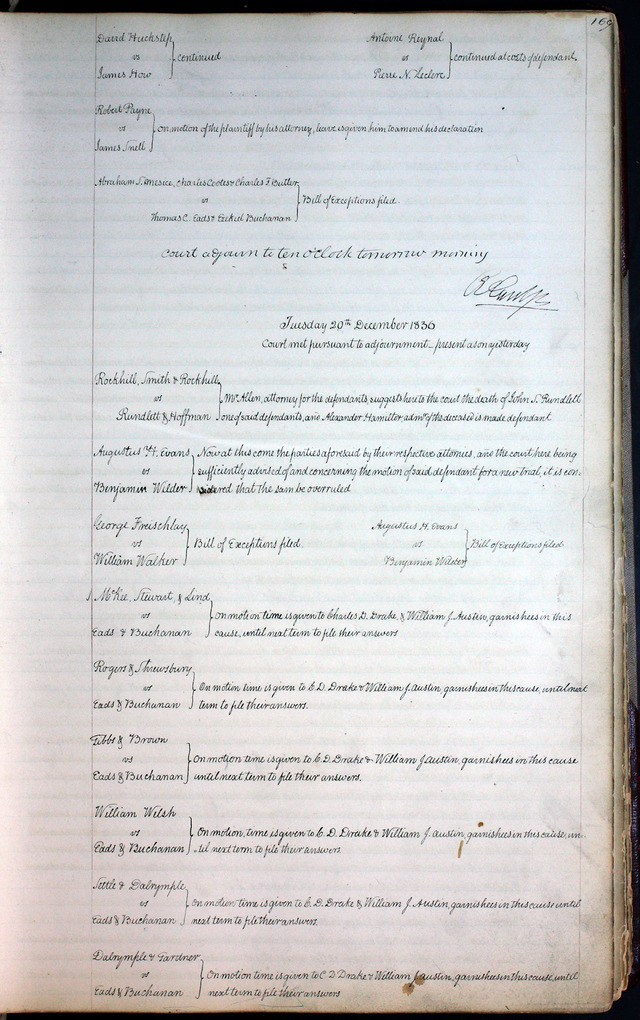 169
David Huckstep
vs } continued
James How
Antoine Reynal
vs } continued at costs of defendant.
Pierre N. Leclerc
Robert Payne
vs } on motion of the plaintiff by his attorney, leave is given him to amend his declaration
James Snell
Abraham S. Charles Cootes & Charles F. Butler
vs } Bill of Exceptions filed.
Thomas C. Eads & Ezekiel Buchanan
Court adjourn to ten o'Clock tomorrow morning
Tuesday 20th December 1836
Court met pursuant to adjournment_ present as on yesterday
Rockhill, Smith & Rockhill
vs } Mr Allen, attorney for the defendants, suggests here to the court the death of John S. Rundlett
Rundlett & Hoffman one of said defendants, and Alexander Hamilton, admr of the deceased is made defendant
Augustus H. Evans } Now at this come the parties aforesaid by their respective attornies, and the court here being
vs sufficiently advised of and concerning the motion of said defendant for a new trial, it is con-
Benjamin Wilder sidered that the sam be overruled
George Freischlag
vs } Bill of Exceptions filed.
William Walker
Augustus H. Evans
vs } Bill of Exceptions filed
Benjamin Wilder
McKee, Stewart, & Lind
vs } on motion time is given to Charles D. Drake, & William J. Austin, garnishees in this
Eads & Buchanan cause, until next term to file their answers
Rogers & Shrewsbury
vs } On motion time is given to C. D. Drake & William J. Austin, garnishees in this cause, until next
Eads & Buchanan term to file their answers.
Tibbs & Brown
vs } On motion time is given to C. D. Drake & William J Austin, garnishees in this cause
Eads & Buchanan until next term to file their answers.
William Welsh
vs } On motion, time is given to C. D. Drake & William J. Austin, garnishees in this cause, un-
Eads & Buchanan -til next term to file their answers.
Settle & Dalrymple
vs } On motion time is given to C. D. Drake & William J. Austin, garnishees in this cause until
Eads & Buchanan next term to file their answers.
Dalrymple & Gardner
vs } On motion time is given to C D Drake & William J Austin, garnishees in this cause, until
Eads & Buchanan next term to file their answers